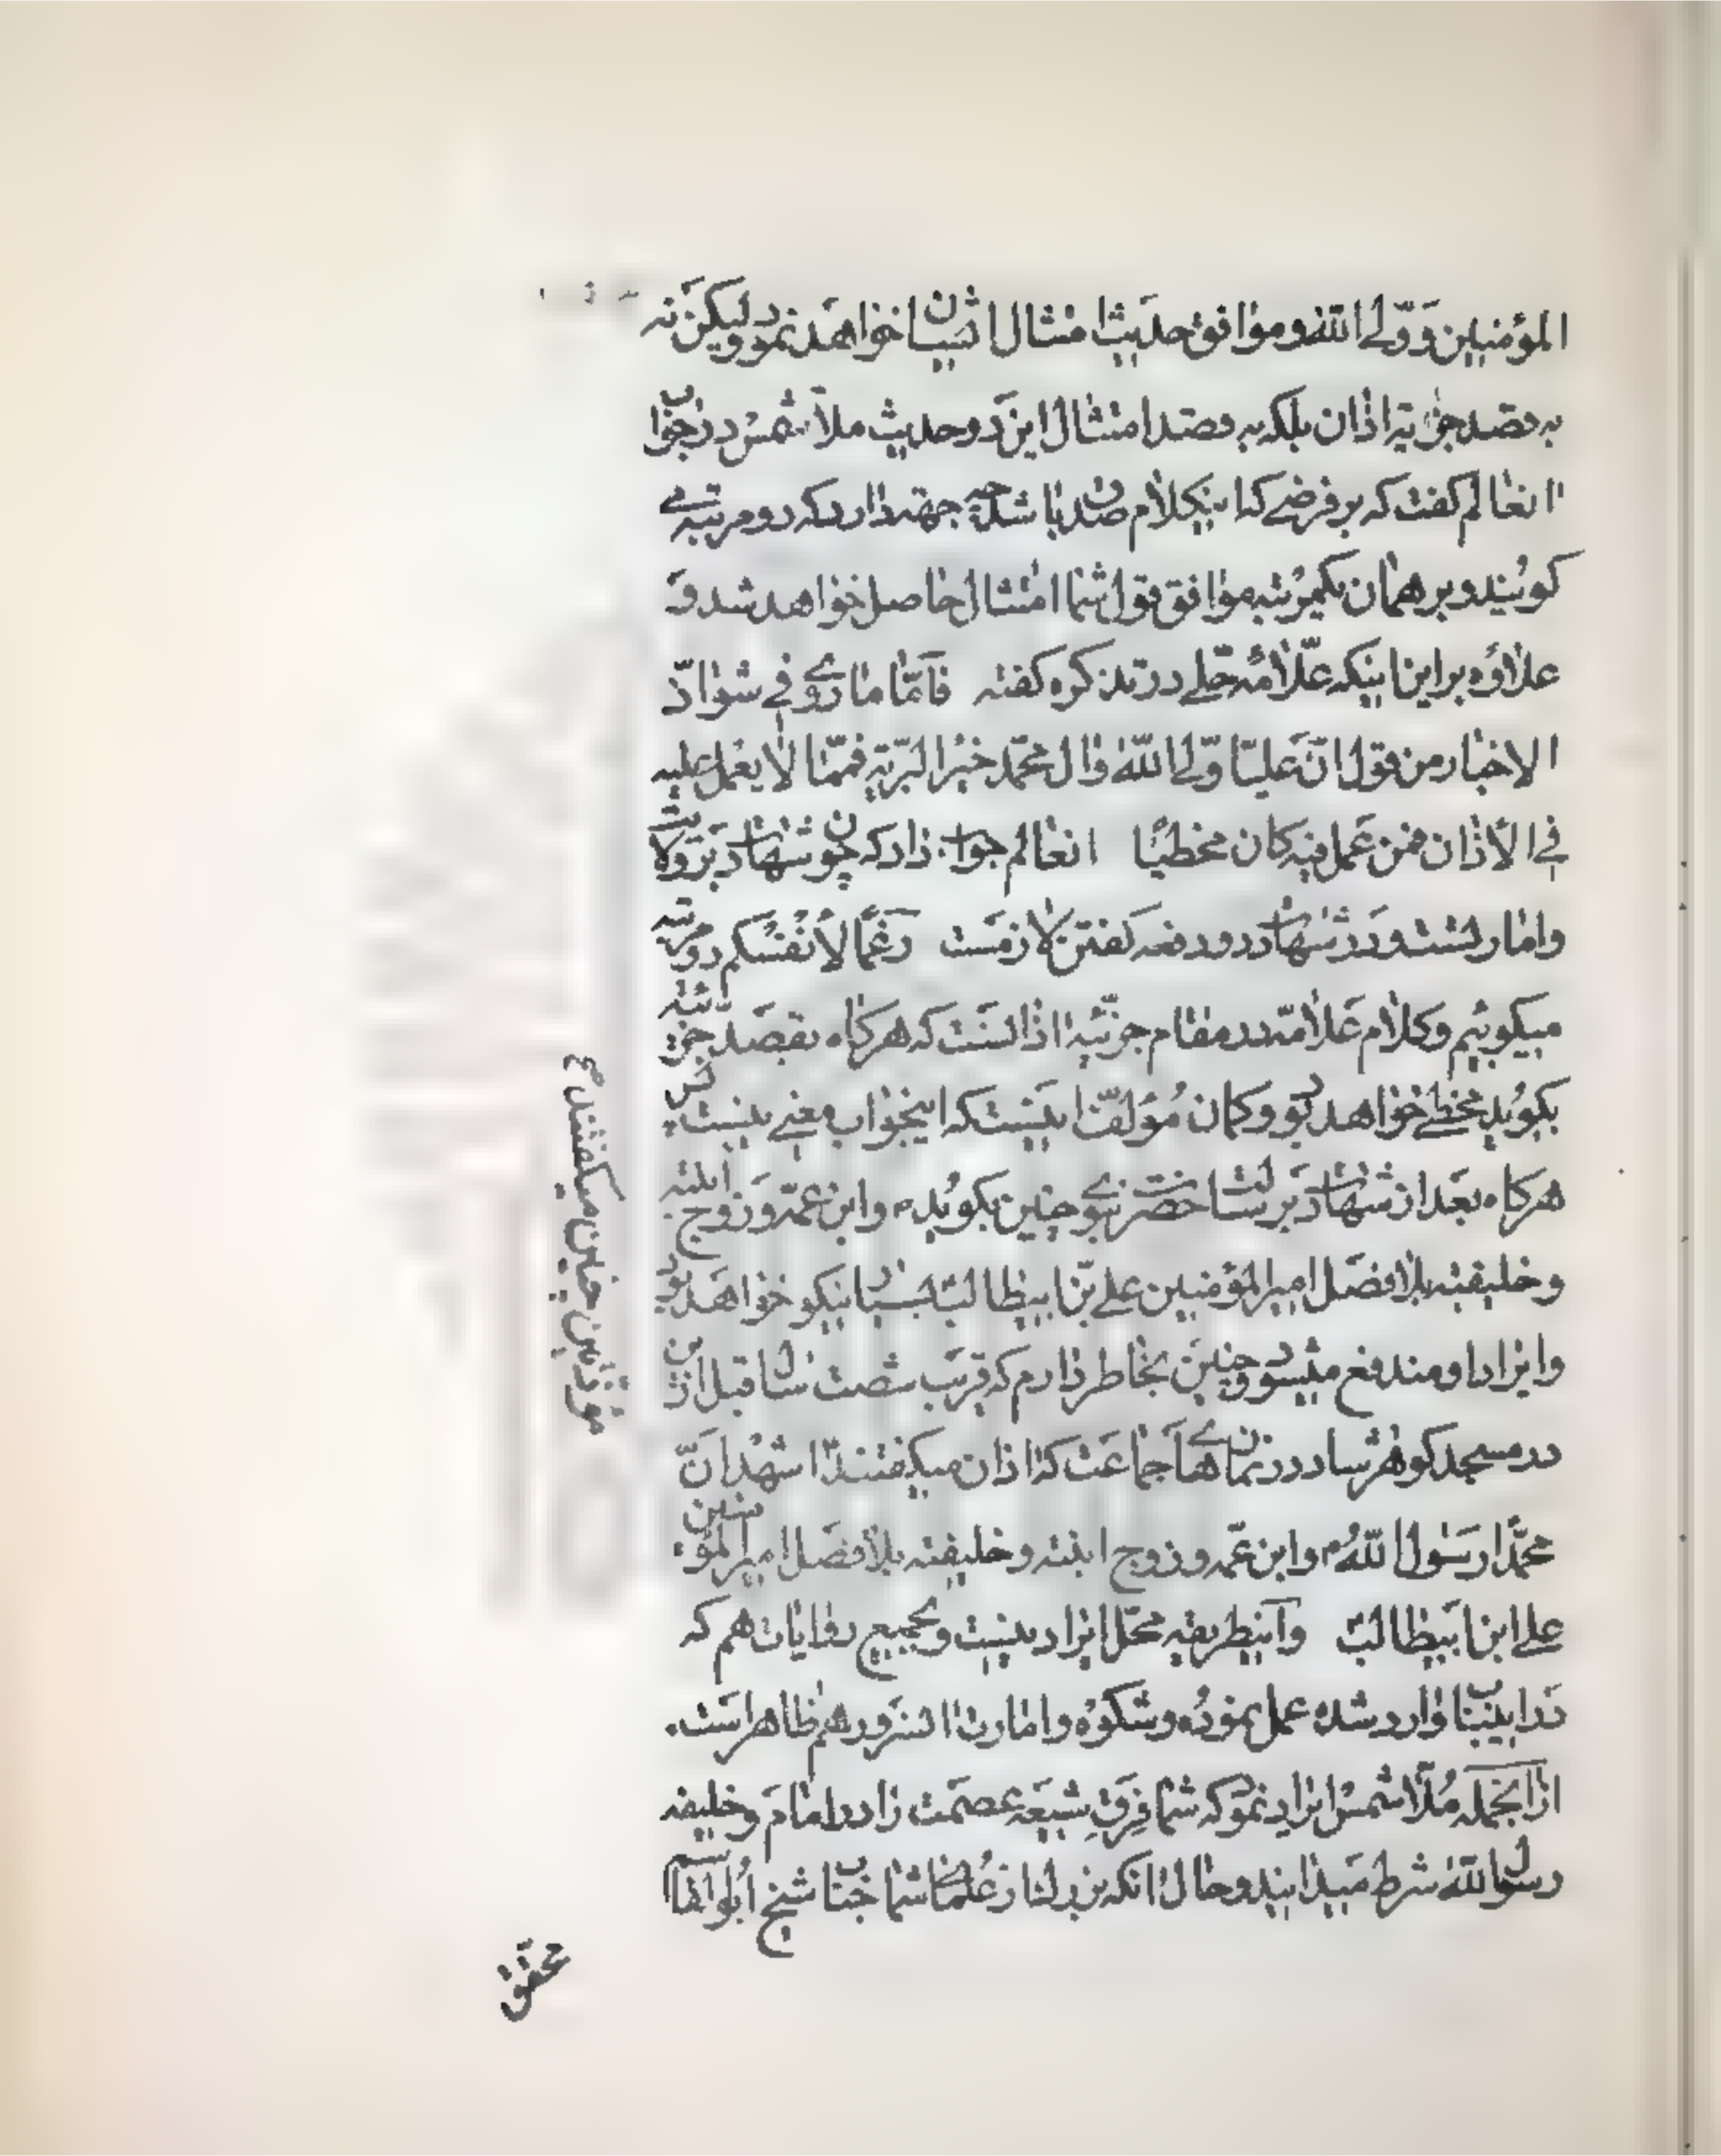 المؤمنین و ولی الله و موافق حدیث امتثال ایشان خواهد نمود ولیکن نه
به قصد جزئیة اذان بلکه به قصد امتثال این دو حدیث ملا شمس در جواب
انعالم کفت که بر فرضی که اینکلام صدق باشد چه جهة دارد که دو مرتبه می
کویند و بر همان یکمرتبه موافق قول شما امتثال حاصل خواهد شد و
علاوه بر این اینکه علّامه حلی در تذکره کفته فامّا ما روی فی شواذّ
الاخبار من قول انّ علیّا ولی الله وال محمّد خیر البریّة فممّا لا یعمل علیه
فی الاذان فمن عمل فیه کان مخطئا انعالم جواب داد که چون شهادت بر ولایت
وامارتست و در شهادت دو دفعه کفتن لازمست رغما لأنفسکم دو مرتبه
میکوییم و کلام علامه در مقام جزئیة اذانست که هرکاه بقصد جزئیته
بکوید مخطی خواهد بود و کمان مؤلف اینست که اینجواب معنی نیست پس
هرکاه بعد از شهادت بر رسالت حضرت نبوی چنین بکوید م وابن عمّه و زوج ابنته
و خلیفته بلا فصل امیر المؤمنین علی بن ابیطالب بسیار نیکو خواهد بود
وایراد او مندفع میشود و چنین بخاطر دارم که قریب شصت سال قبل ازین
در مسجد کوهرشاد در زمانهای جماعت که اذان میکفتند اشهد انّ
محمّدا رسول الله م وابن عمّه و زوج ابنته و خلیفته بلا فصل امیر المؤمنین
علی ابن ابیطالب و آنیطریقه محل ایراد نیست و بجمیع روایات هم که
در این باب وارد شده عمل نموده و شکوه وامارت انسرور هم ظاهر است
ازانجمله ملّا شمس ایراد نمود که شما فرق شیعه عصمت را در امام و خلیفه
رسول الله شرط میدانید و حال انکه بزرکان از علمای شما جناب شیخ ابوالقاسم
محقق
مؤذنین چنین میکفتند